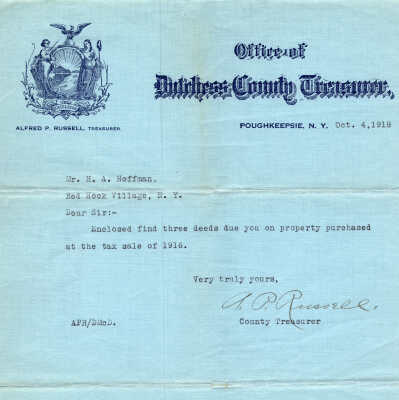 Office of
Dutchess County Treasurer,
ALFRED P. RUSSELL, TREASURER.
POUGHKEEPSIE, N. Y. Oct. 4, 1918
Mr. H. A. Hoffman,
Red Hook Village, N. Y.
Dear Sir:-
Enclosed find three deeds due you on property purchased
at the tax sale of 1916.
Very truly yours,
A. P. Russell.
APR/DMcD. County Treasurer